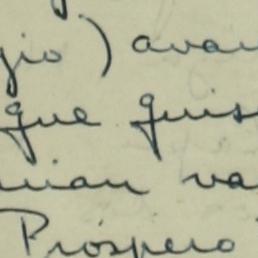 gio) avan
que quis
mian va
Próspero